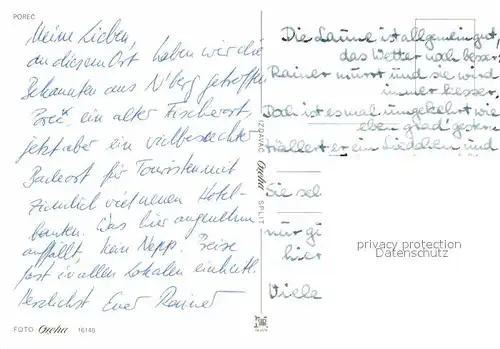 POREC
Meine Lieben,
an diesem Ort haben wir die
Bekannten aus N'berg getroffen
Poreč ein alter Fischerort,
jetzt aber ein vielbesuchter
Badeort für Touristen mit
ziemlich viel neuen Hotel-
bauten. Was hier angenehm
auffällt, kein Nepp. Preise
fast in allen Lokalen einheitl.
Herzlichst Euer Rainer
FOTO 16146
IZDAVAČ SPLIT
Die Laune ist allgemein gut,
das Wetter noch besser.
Rainer murrt und sie wird
immer besser.
Doch ist es mal umgekehrt wie
eben grad' gestern
trällert er ein Liedchen und
Sie sel
nur gü
hier
Viele
privacy protection
Datenschutz